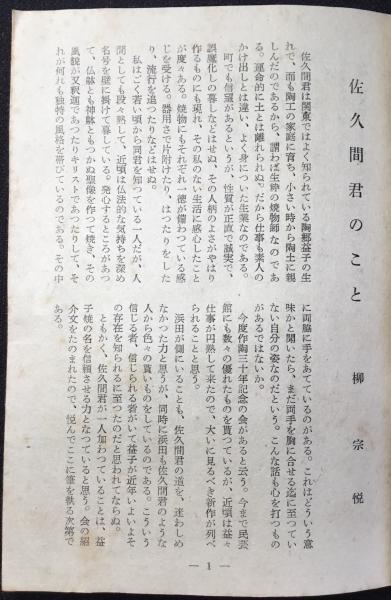 佐久間君のこと
柳宗悦
佐久間君は関東ではよく知られている陶郷益子の生
れで、而も陶工の家庭に育ち、小さい時から陶土に親
しんだのであるから、謂わば生粋の焼物師なのであ
る。運命的に土とは離れられぬ。だから仕事も素人の
かけ出しとは違い、よく身についた生業なのである。
町でも信望があるというが、性質が正直で誠実で、
誤魔化しの暮しなどはせぬ、その人柄のよさがやはり
作るものにも現れ、その私のない生活に感心したこと
が度々ある。焼物にもそれぞれ一徳が備わっている感
じを受ける。器用さで片附けたり、はつたりをした
り、流行を追つたりなどはせぬ。
私はごく若い頃から同君を知つている一人だが、人
間としても段々熟して、近頃は仏法的な気持ちを深め
名号を壁に掛けて暮している。発心するところがあつ
て、仏躰とも神躰ともつかぬ聖像を作つて焼き、その
風貌が又釈迦であつたりキリストであつたりして、そ
れが何れも独特の風格を帯びているのである。その中
に両脇に手をあてているのがある。これはどういう意
味かと聞いたら、まだ両手を胸に合せる迄に至つてい
ない自分の姿なのだという。こんな話も心を打つもの
があるではないか。
今度作陶三十年記念の会があると云う。今まで民芸
館にも数々の優れたものを買つているが、近頃は益々
仕事が円熟して来たので、大いに見るべき新作が列べ
られることと思う。
浜田が側にいることも、佐久間君の道を、迷わしめ
なかつた力と思うが、同時に浜田も佐久間君のような
人から色々の貰いものをしているのである。こういう
信じる者、信じられる者がいて益子が近年いよいよそ
の存在を知られるに至つたのだと思われてならぬ。
ともかく、佐久間君が一人加わつていることは、益
子焼の名を信頼させる力となつていると思う。会の紹
介文をたのまれたので、悦んでここに筆を執る次第で
ある。
— 1 —